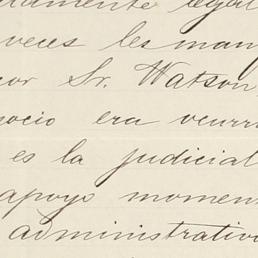 legal
veces les man
Sr. Watson
socio era
es la judicial
apoyo momen
administrativ